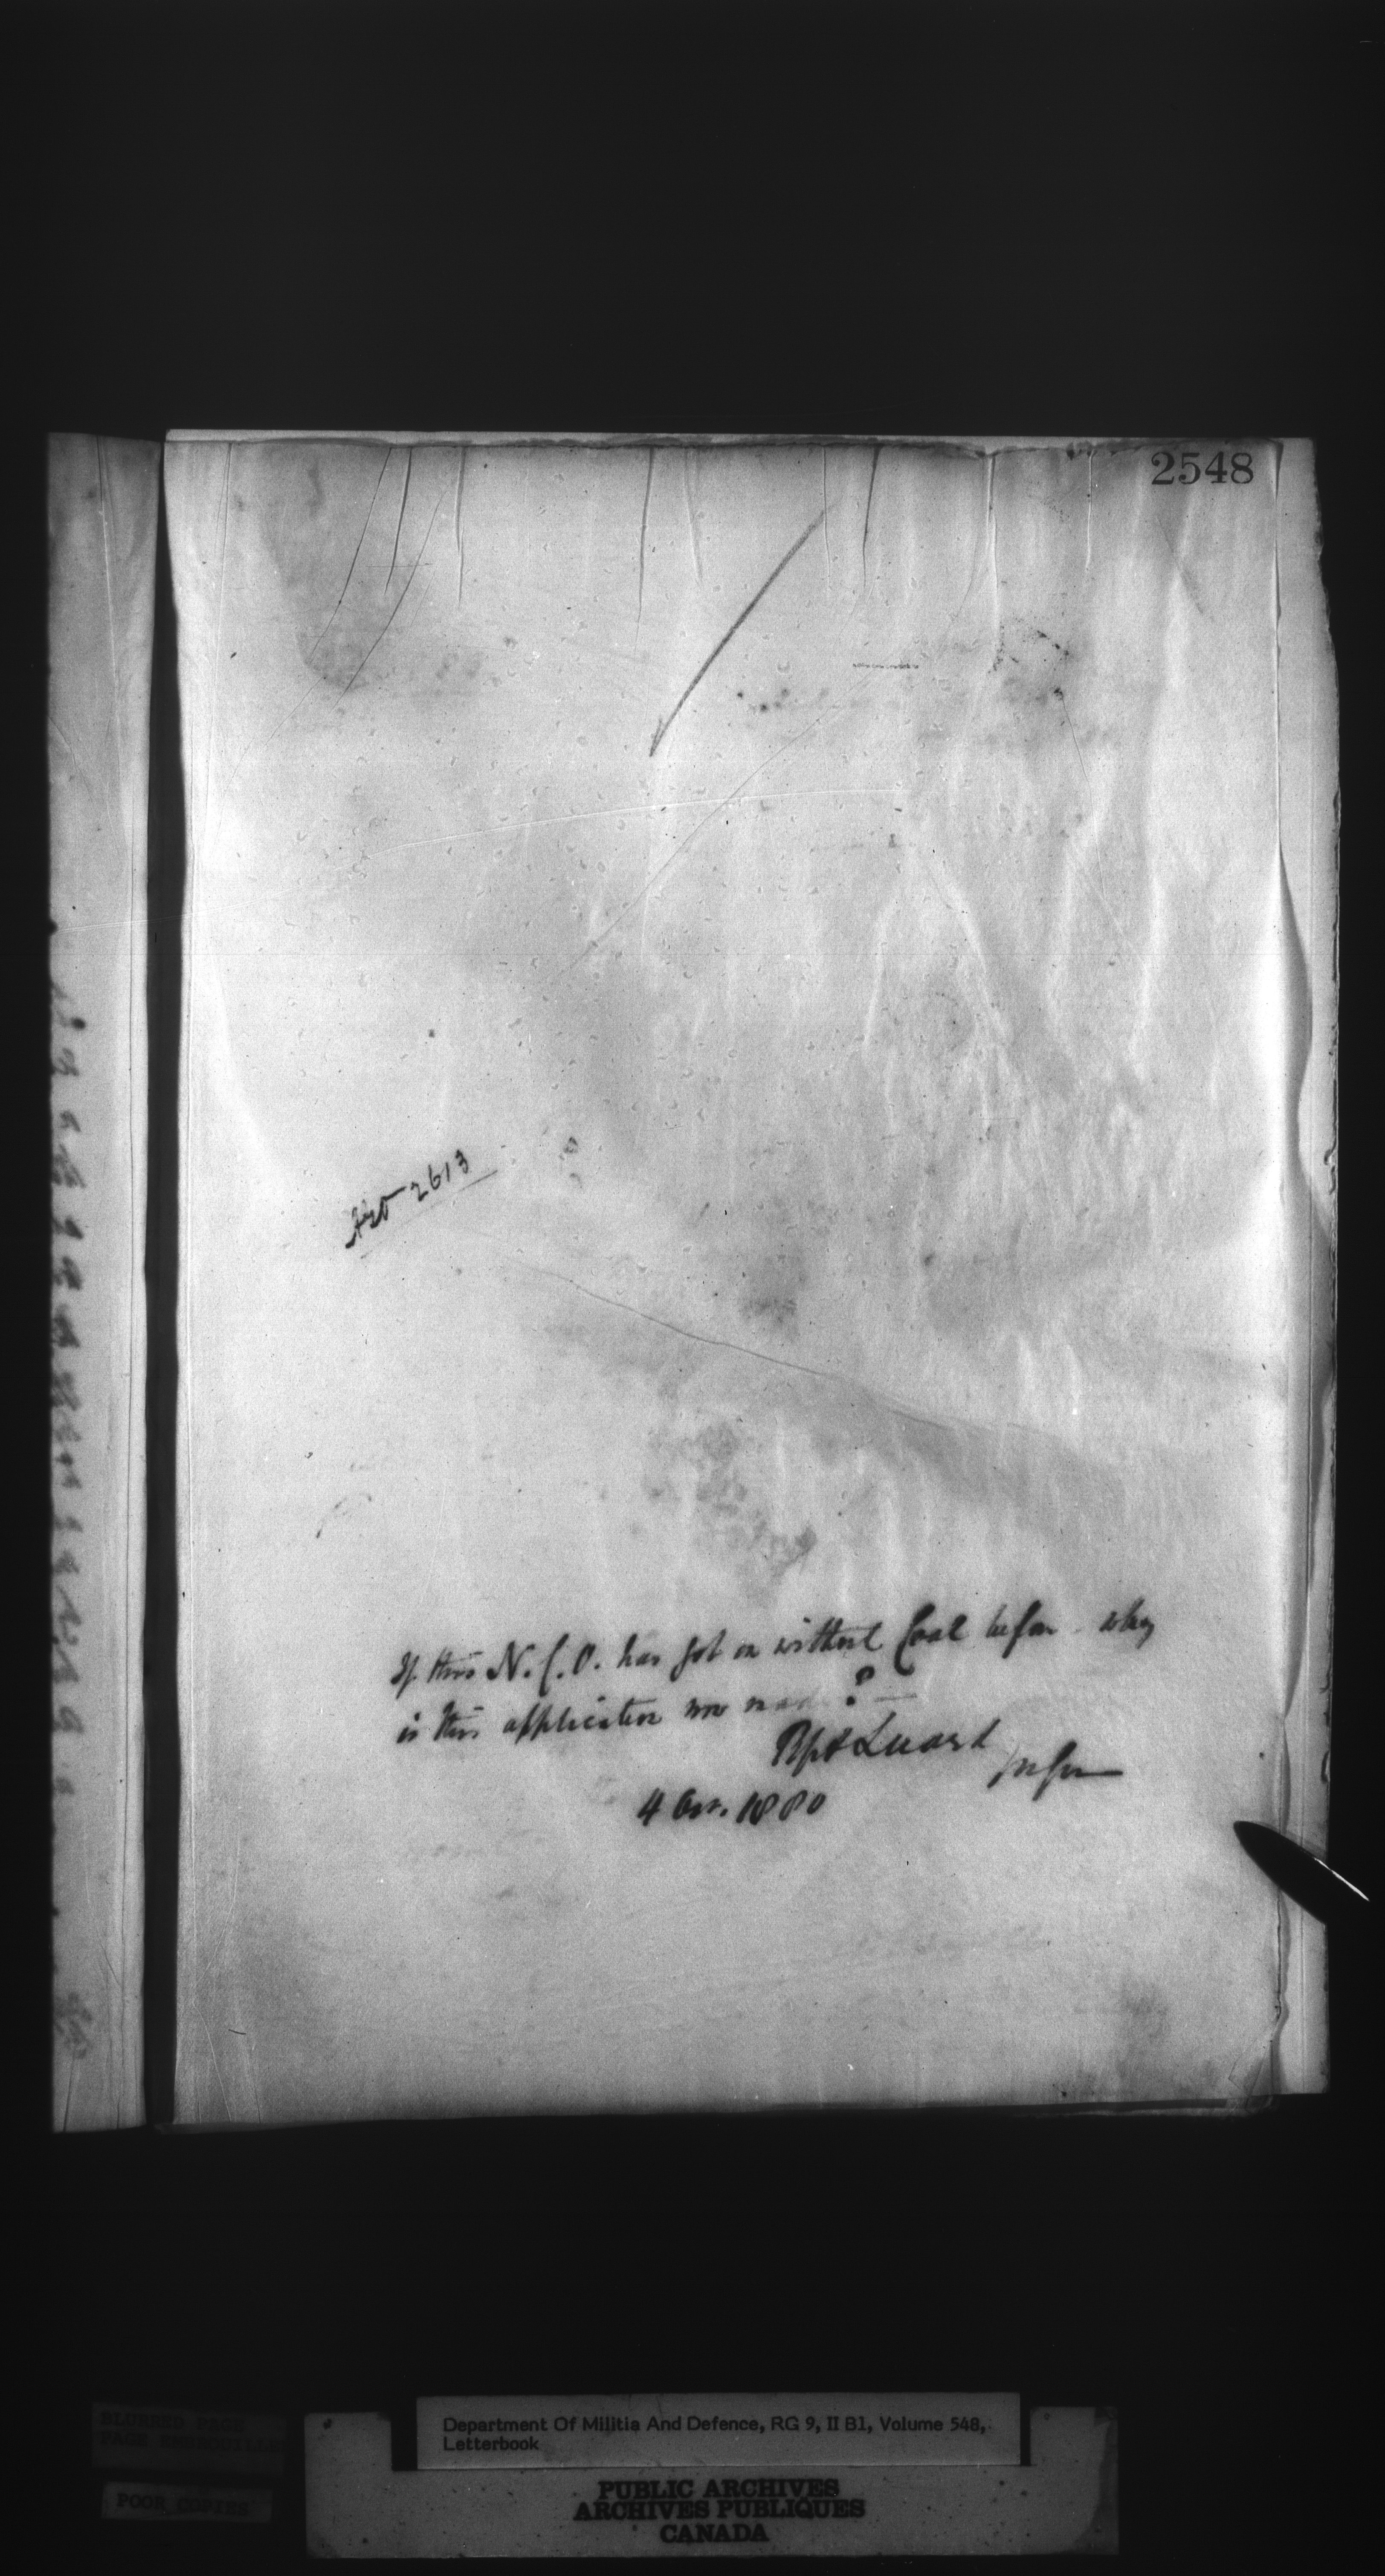 2548
2613
If this N.C.O. has got on without Coal before why
is this application now made ? —
Luard
4 Oct. 1880
BLURRED PAGE
PAGE EMBROUILLÉE
POOR COPIES
Department Of Militia And Defence, RG 9, II B1, Volume 548,
Letterbook
PUBLIC ARCHIVES
ARCHIVES PUBLIQUES
CANADA